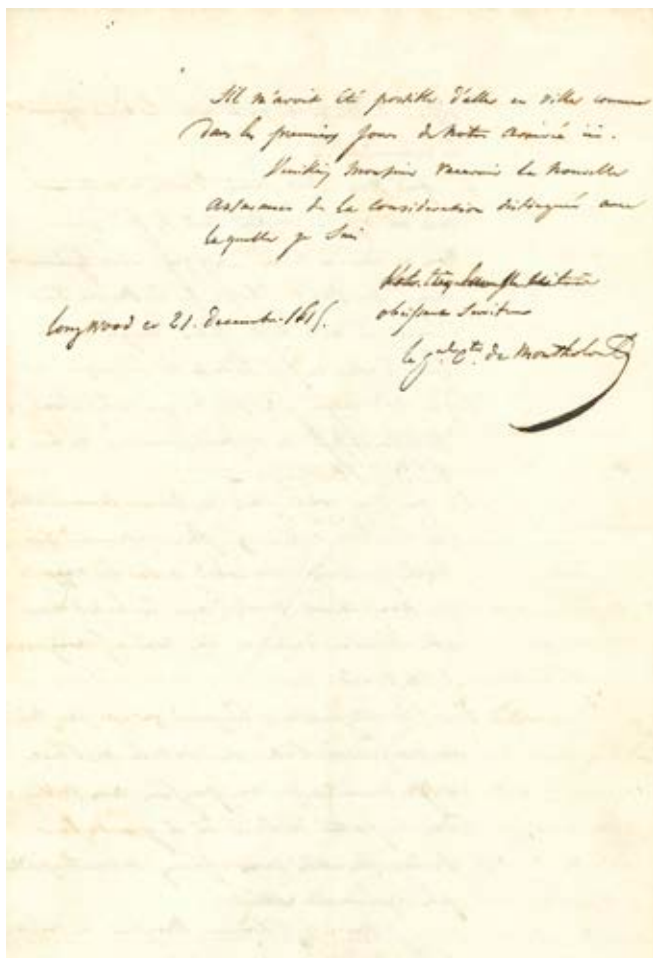 S'il m'avoit été possible d'aller en ville comme
dans les premiers jours de notre arrivée ici.
Veuillez Monsieur recevoir la nouvelle
assurance de la consideration distinguée avec
laquelle je suis
Votre très humble et
obeissant Serviteur
Longwood ce 21. Decembre 1815.
le gal. cte. de Montholon